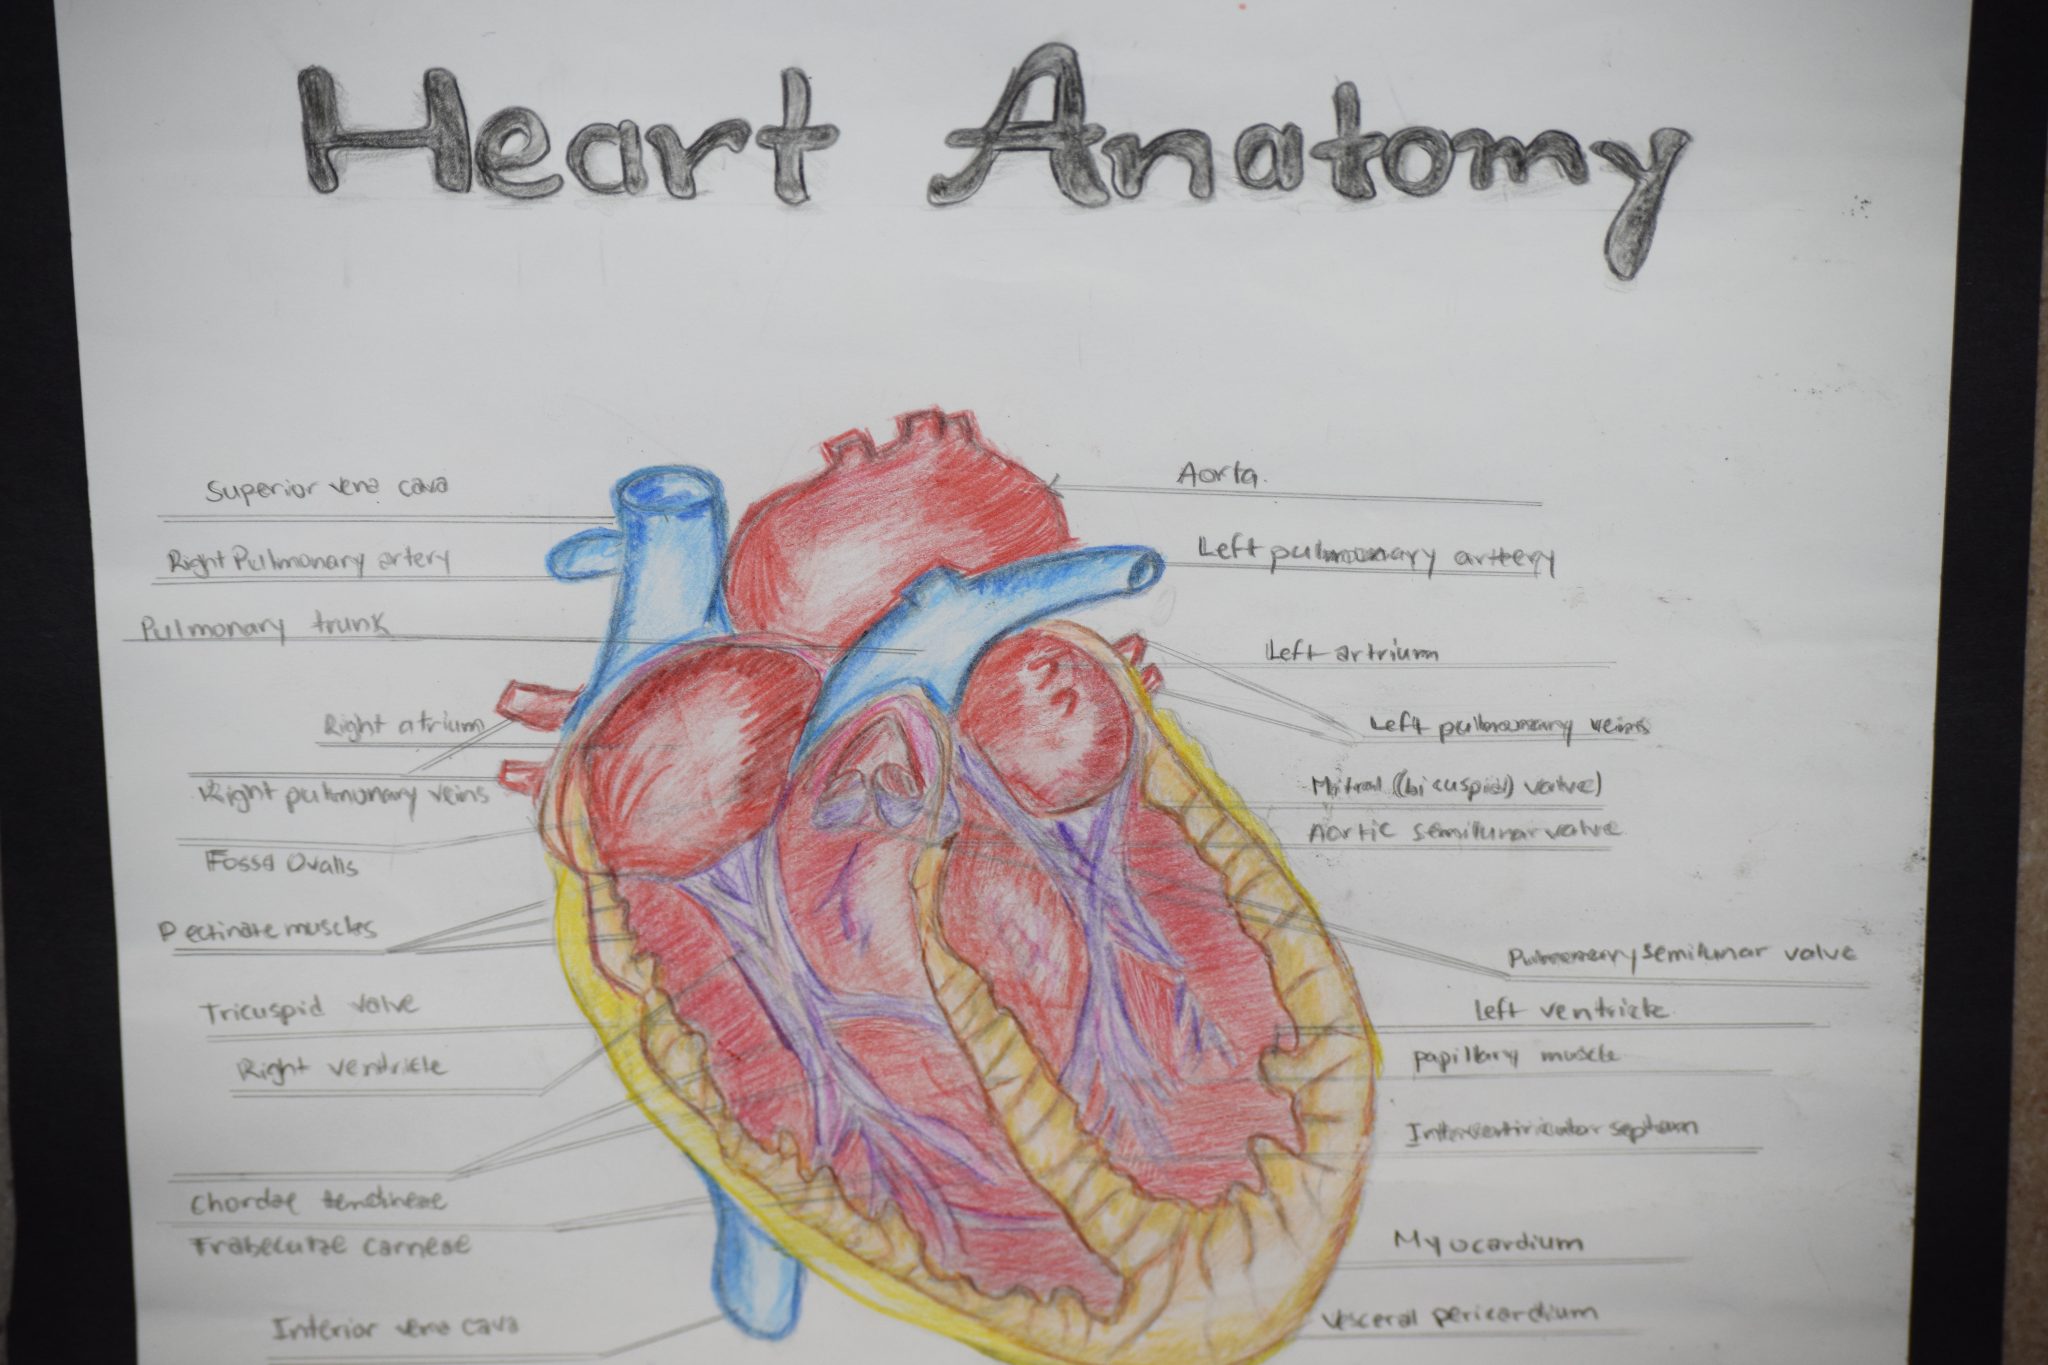 Heart Anatomy
Superior vena cava
Right Pulmonary artery
Pulmonary trunk
Right atrium
Right pulmonary veins
Fossa Ovalis
Pectinate muscles
Tricuspid valve
Right ventricle
Chordae tendineae
Trabeculae carneae
Interior vena cava
Aorta.
Left pulmonary arttery
Left artrium
Left pulmonary veins
Mitral (bicuspid) valve)
Aortic semilunar valve
Pulmonary semilunar valve
Left ventricle
papillary muscle
septum
Myocardium
Visceral pericardium